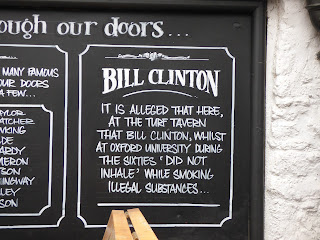 ough our doors...
MANY FAMOUS
OUR DOORS
A FEW...
BILL CLINTON
IT IS ALLEGED THAT HERE,
AT THE TURF TAVERN
THAT BILL CLINTON, WHILST
AT OXFORD UNIVERSITY DURING
THE SIXTIES 'DID NOT
INHALE' WHILE SMOKING
ILLEGAL SUBSTANCES...
AYLOR
ATCHER
WKING
LDE
ARDY
MERON
TSON
MINGWAY
LEY
SON